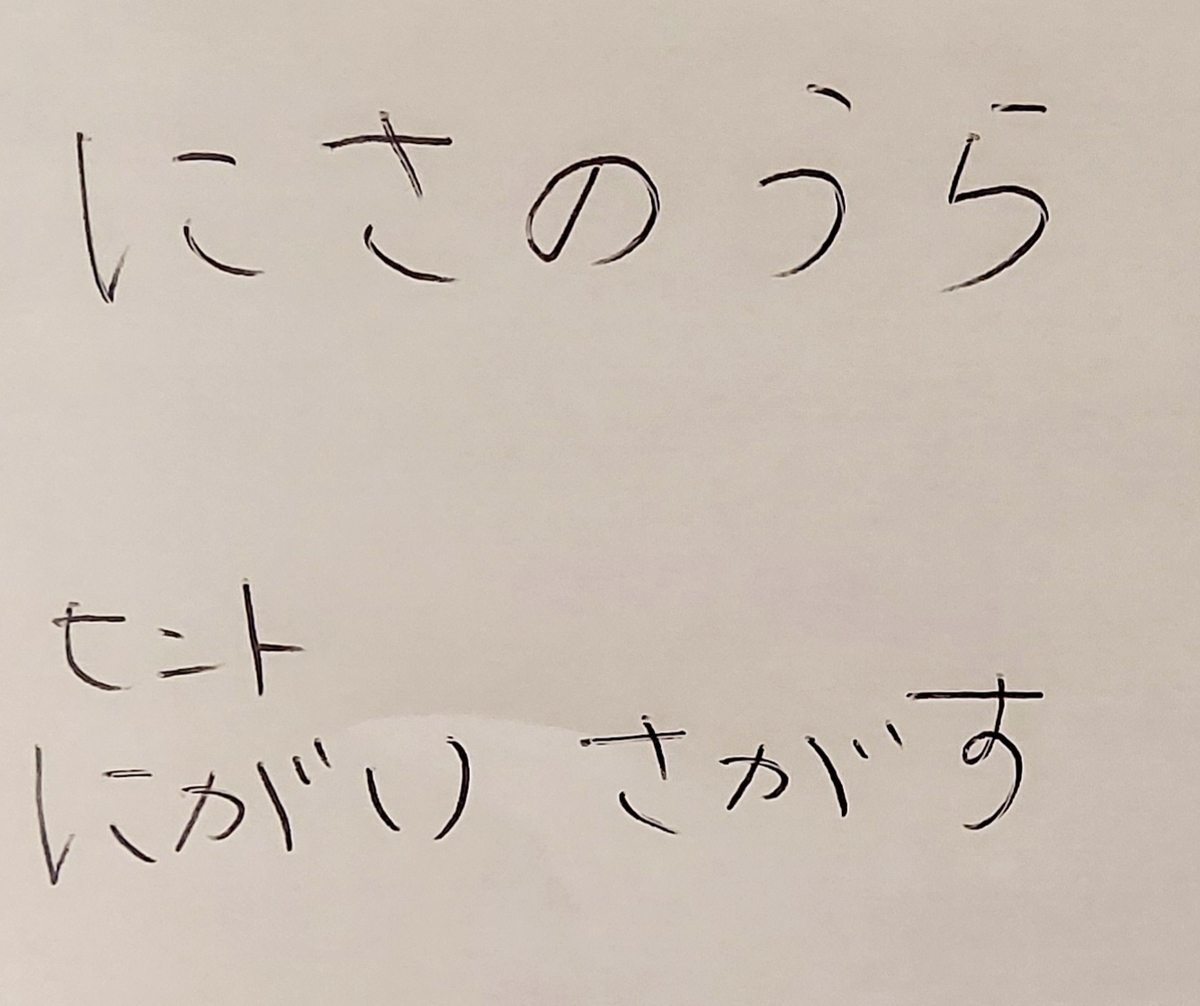 にさのうら
ヒント
にがい さがす